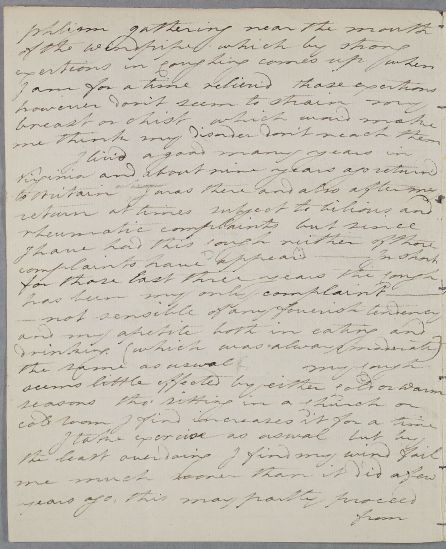 phlegm gathering near the mouth
of the windpipe which by strong
exertions in coughing comes up when
I am for a time reliev'd those exertions
however dont seem to strain my
breast or chist which woud make
me think my disorder dont reach them
I liv'd a good many years in
Virginia and about nine years ago return'd
to Britain I was there and also after my
return at times subject to bilious and
rheumatic complaints but since
I have had this cough neither of those
complaints have appeard In short
for those last three years the cough
has been my only complaint
not sensible of any feverish tendency
and my apetite both in eating and
drinking (which was always moderate)
the same as usual my cough
seems little effected by either cold or warm
seasons tho sitting in a church or
cold room I find increases it for a time
I take exercise as usual but by
the least overdoing I find my wind fail
me much sooner than it did a few
years ago, this may partly proceed
from